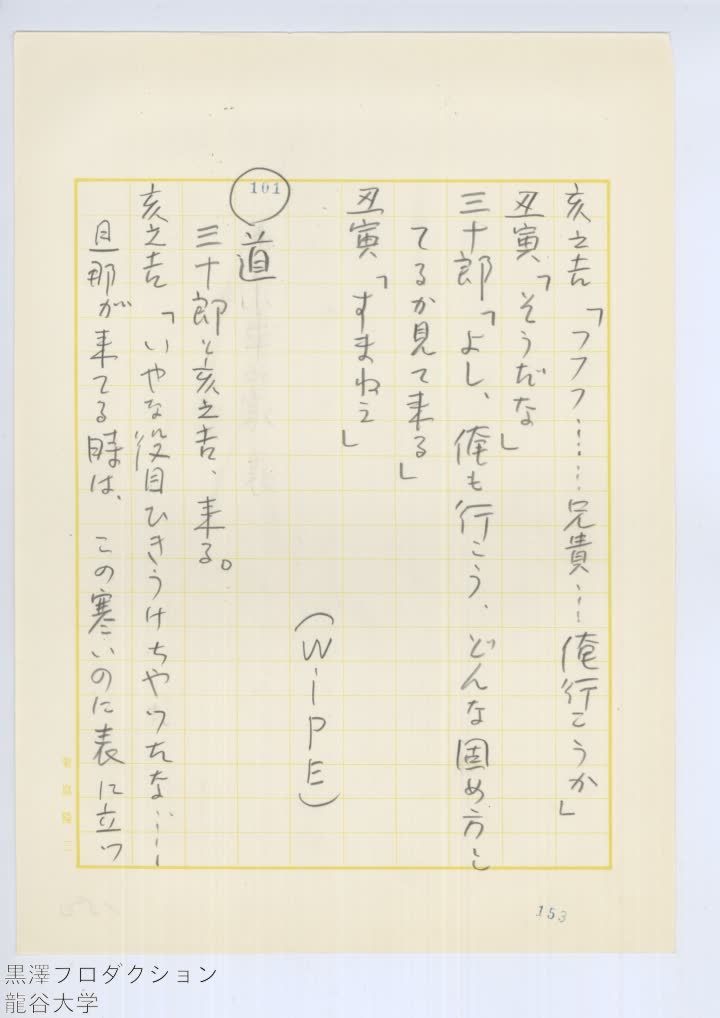 亥之吉「フフフ……兄貴…俺行こうか」
丑寅「そうだな」
三十郎「よし、俺も行こう、どんな固め方し
てるか見て来る」
丑寅「すまねえ」
(WIPE)
101
道
三十郎と亥之吉、来る。
亥之吉「いやな役目ひきうけちゃったな……
旦那が来てる時は、この寒いのに表に立つ
153
黒澤フロダクション
龍谷大学